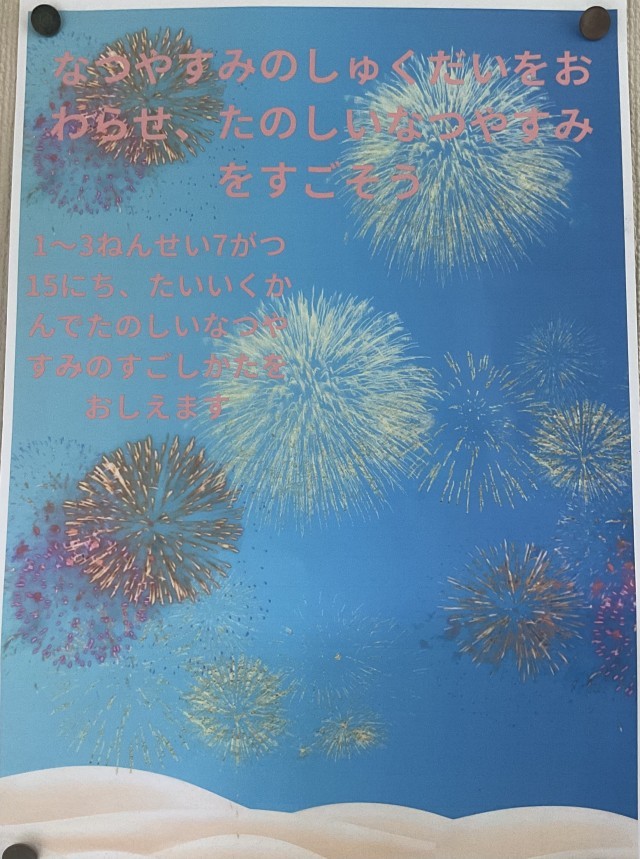 なつやすみのしゅくだいをお
わらせ、たのしいなつやすみ
をすごそう
1〜3ねんせい7がつ
15にち、たいいくか
んでたのしいなつや
すみのすごしかたを
おしえます